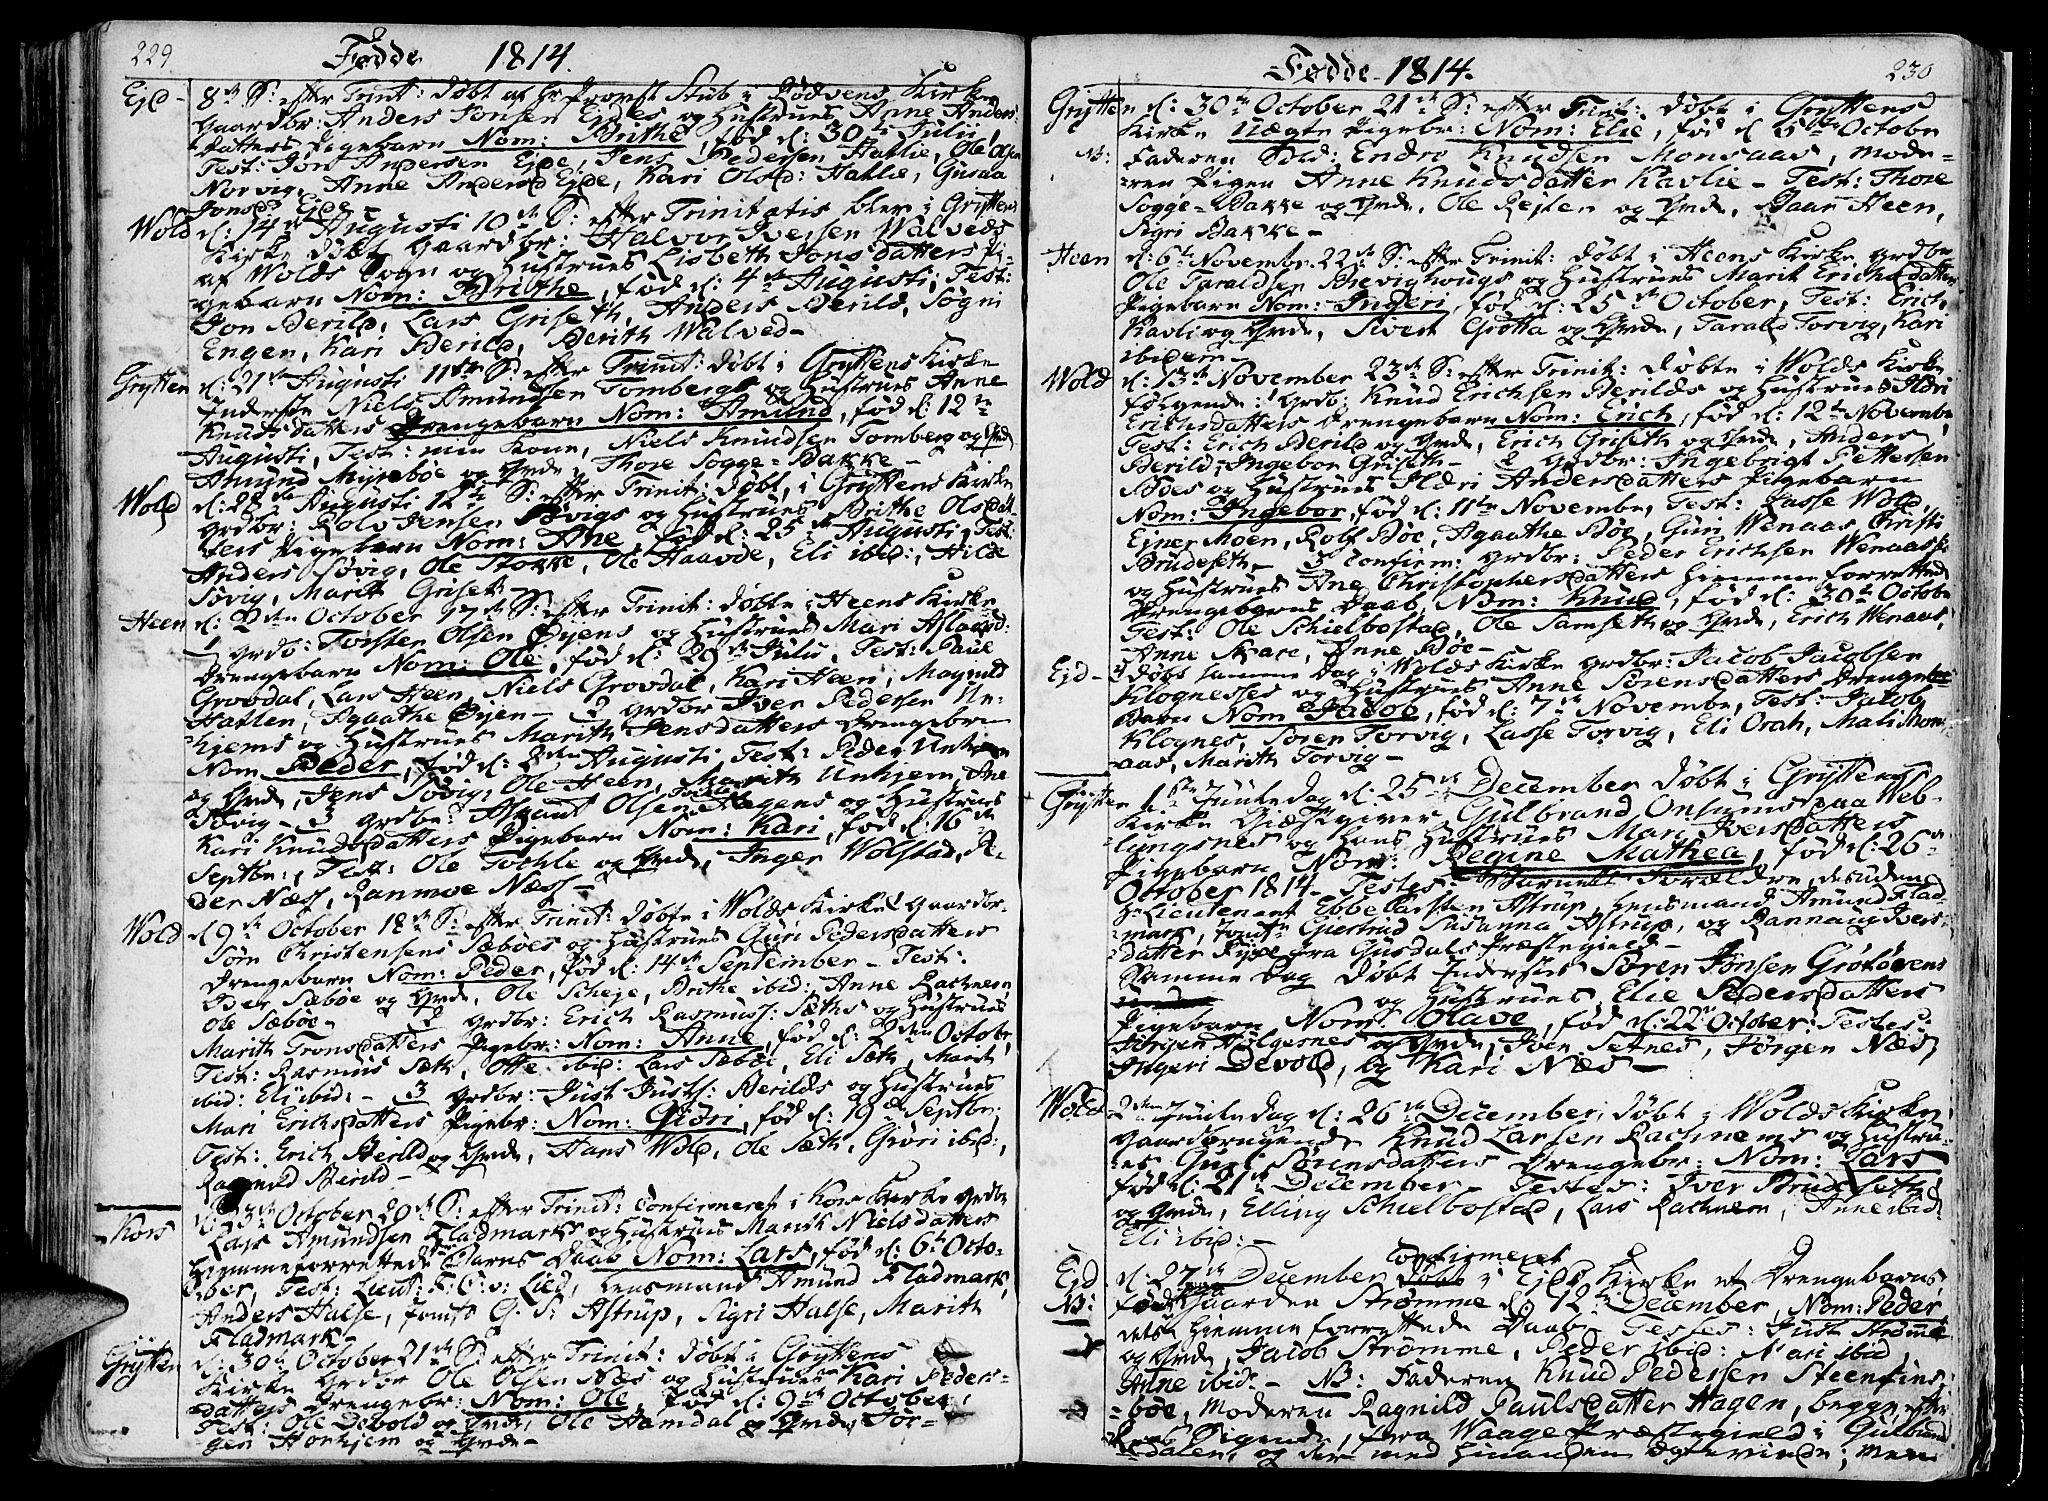 229 Fødde 1814.
Ejd - 8de S: efter Trinit: døbt af Hr Provst Stub i Rødvens Kirke
Gaardbr: Anders Jonsen Ejdes og Hustrues Anne Anders:
Datters Pigebarn Nom: Brithe, fød d: 30te Julii,
Test: Jon Andersen Ejde, Jens Pedersen Hatlie, Ole Olsen
Norvig, Anne Andersd Ejde, Kari Olsd: Hatlie, Guraa
Jonsd Ejde -
Wold d: 14de Augusti 10de S: efter Trinitatis blev i Gryttens
Kirke døbt Gaardbr: Halvor Iversen Walveds
af Wolds Sogn og Hustrues Lisbeth Jonsdatters Pi-
gebarn Nom: Brithe, fød d: 4de Augusti, Test:
Jon Berild, Lars Griseth, Anders Berild, Søgni
Engen, Kari Berild, Berith Walved -
Grytten d: 21de Augusti 11te S: efter Trinit: døbt i Gryttens Kirke
Inderste Niels Amundsen Tombergs og Hustrues Anne
Knudsdatters Drengebarn Nom: Amund, fød d: 12te
Augusti, Test: min Kone, Niels Knudsen Tomberg og Grde
Amund Myrebøe og Grde, Thore Sogge-Bakke -
Wold d: 28de Augusti 12te S: efter Trinit: døbt, i Gryttens Kirke
Grdbr: Rolv Jensen Søvigs og Hustrues Brithe Olsdat
ters Pigebarn Nom: Ane, fød d: 25de Augusti, Test:
Anders Søvig, Ole Stokke, Ole Haavde, Eli ibid:, Hilde
Søvig, Marit Griset -
Heen d: 2den October 17de S: efter Trinit: døbte i Heens Kirke
1 Grdb: Torsten Olsen Øyens og Hustrues Mari Aslaksd:
Drengebarn Nom: Ole, fød d: 29de Julii, Test: Paul
Grovdal, Lars Heen, Niels Grovdal, Kari Heen, Magnild
Hatlen, Agaathe Øyen - 2 Grdbr Iver Pedersen Un-
hjems og Hustrues Marith Jensdatters Drengebrn
Nom Peder, fød d: 8den Augusti Test: Peder Unhjem
og Grde, Jens Søvig, Ole Heen, Marith Unhjem, Ane
Søvig - 3 Grdbr: Askant Olsen Hagens og Hustrues
Kari Knudsdatters Pigebarn Nom: Kari, fød d: 16de
Septbr:, Test: Ole Tokle og Grde, Inger Wolstad, Pe-
der Næss, Ranmoe Næss -
Wold d 9de October 18de S: efter Trinit: døbte i Wolds Kirke 1 Gaardbr.
Sørn Christensens Sæbøes og Hustrues Guri Pedersdatters
Drengebarn Nom: Peder, fød d: 14de September - Test:
Peder Sæbøe og Grde, Ole Scheje, Brithe ibid:, Anne Rachnem,
Ole Sæbøe - 2 Grdbr: Erich Rasmuss: Sæths og Hustrues
Marith Tronsdatters Pigebr: Nom: Anne, fød d: 2den October,
Test: Rasmus Sæth, Otte ibid: Lars Sæbøe, Eli Sæth, Marit
ibid: Eli ibid: - 3 Grdbr: Just Justs: Berilds og Hustrues
Mari Erichsdatters Pigebr: Nom: Giøri, fød d: 19de Septbr;
Test: Erich Berild og Grde, Hans Wold, Ole Sæth, Giøri ibid:,
Ragnild Berild -
Kors d 23de October 20de S: efter Trinit: Confirmeret i Kors Kirke Grdbr
Lars Amundsen Fladmarks og Hustrues Marith Nielsdatters
hiemmeforrettede Barns Daab Nom: Lars, fød d: 6te Octo-
ber, Test: Lieut: F: C: v: Lied, Lensmand Amund Fladmark,
Anders Halse, Jomfr G: S: Astrup, Sigri Halse, Marith
Fladmark -
Grytten d: 30de October 21de S: efter Trinit: døbt i Gryttens
Kirke Grdbr Ole Olsen Næs og Hustrues Kari Peders-
datters Drengebr: Nom: Ole, fød d: 9de October,
Test: Ole Debold og Grde, Ole Hamdal og Grde, Jør-
gen Horhjem og Grde -
Fødde 1814. 230
Grytten d: 30te October 21de S: efter Trinit: døbt i Gryttens
Kirke Uægte Pigebr: Nom: Elie, fød d. 5te Octobr
N: Faderen Sold: Endre Knudsen Monsaas, Mode-
ren Pigen Anne Knudsdatter Kavlie - Test: Thore
Sogge-Bakke og Grde, Ole Resten og Grde, Baar Heen,
Sigri Bakke -
Heen d: 6te Novembr. 22de S: efter Trinit: døbt i Heens Kirke Grdbr
Ole Taraldsen Brevighougs og Hustrues Marit Erichsdatters
Pigebarn Nom: Ingeri, fød d: 25de October, Test: Erich
Kavli og Grde, Sivert Grotta og Grde, Tarald Torvig, Kari
ibidem -
Wold d: 13de November 23de S: efter Trinit: døbte i Wolds Kirke
følgende: 1 Grdb: Knud Erichsen Berilds og Hustrues Ildri
Erichsdatters Drengebarn Nom: Erich, fød d: 12te Novembr,
Test: Erich Berild og Grde, Erich Griseth og Grde, Anders
Berild, Ingebor Griseth - 2 Grdbr: Ingebrigt Pettersen
Bøes og Hustrues Ildri Andersdatters Pigebarn
Nom: Ingebor, fød d: 11te Novembr, Test: Lasse Wold,
Ejner Moen, Rolf Bøe, Agaathe Bøe, Guri Wenaas, Christi
Brudeseth - 3 Confirm: Grdbr: Peder Erichsen Wenaas's
og Hustrues Ane Christophersdatters hiemme forrettede
Drengebarns Daab, Nom: Knud, fød d: 30te Octobr
Test: Ole Schielbostad, Ole Samseth og Grde, Erich Wenaas,
Anne Mare, Anne Bøe -
Ejd - døbt samme Dag i Wolds Kirke Grdbr: Jacob Jacobsen
Klognesses og Hustrues Anne Sørensdatters Drenge-
Barn Nom Jacob, fød d: 7de Novembr, Test: Jacob
Klognes, Søren Torvig, Lasse Torvig, Eli Orah, Mali Mons-
aas, Marith Torvig -
Grytten 1ste Juuledag d: 25de December døbt i Gryttens
Kirke Giæstgiver Gulbrand Onsums paa Web-
lungsnes og hans Hustrues Mari Iversdatters
Pigebarn Nom: Regine Mathea, fød d: 26de
October 1814 - Testes: Barnets Forældre, desuden
Hr Lieutenent Ebbe Carsten Astrup, Lensmand Amund Flad
mark, Jomfr Giertrud Susanna Astrup, og Rannaug Ivers-
datter Fyxe fra Gusdals Præstegield -
Samme Dag døbt Inderster Søren Jonsen Grøtørens
og Hustrues Elie Pedersdatters
Pigebarn Nom: Olave, fød d: 22de October: Testes:
Jørgen Holgesnes og Grde, Iver Setnes, Jørgen Næs,
Ingeri Devold, og Kari Næs -
Wold 2den Juuledag d: 26de December, døbt i Wolds Kirke,
Gaardbrugende Knud Larsen Rachnems og Hustru-
es Guri Sørensdatters Drengebr: Nom: Lars
fød d: 21de December - Testes: Iver Brudeseth
og Grde, Elling Schielbostad, Lars Rachnem, Anne ibid:
Eli ibid: -
Confirmeret
Ejd d: 27de December døbt i Ejds Kirke et Drengebarns
NB: fød paa Gaarden Strømme d: 12te December, Nom: Peder,
dets hiemme forrettede Daab, Testes: Just Strømme
og Grde, Jacob Strømme, Peder ibid: Mari ibid,
Anne ibid: - NB: Faderen Knud Pedersen Steenfins-
bøe, Moderen Ragnild Paulsdatter Hagen, begge
Sigende, fra Waage Præstegield i Gulbrands
dalen, og der med hinanden Ægteviede; Men